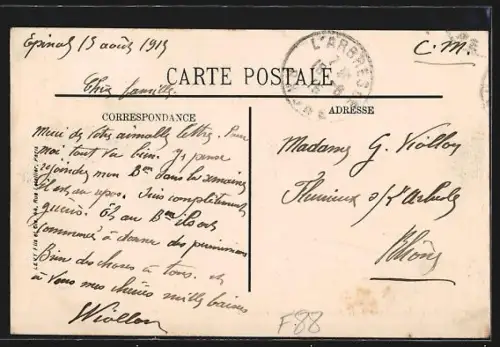 Epinal 15 août 1915
C.M.
L'ARBRESLE
Chère famille
CARTE POSTALE
CORRESPONDANCE
ADRESSE
Merci de votre aimable lettre. Pour
moi tout va bien. J'y pense
rejoindre mon Bon dans la semaine
Il est au repos. Suis complètement
guéri. Et au Bon ils ont
commencé à donner des permissions
Bien des choses à tous. et
à vous mes chères mille baisers
Viollon
Madame G. Viollon
Fleurieux s/ l'Arbresle
Rhône
F88